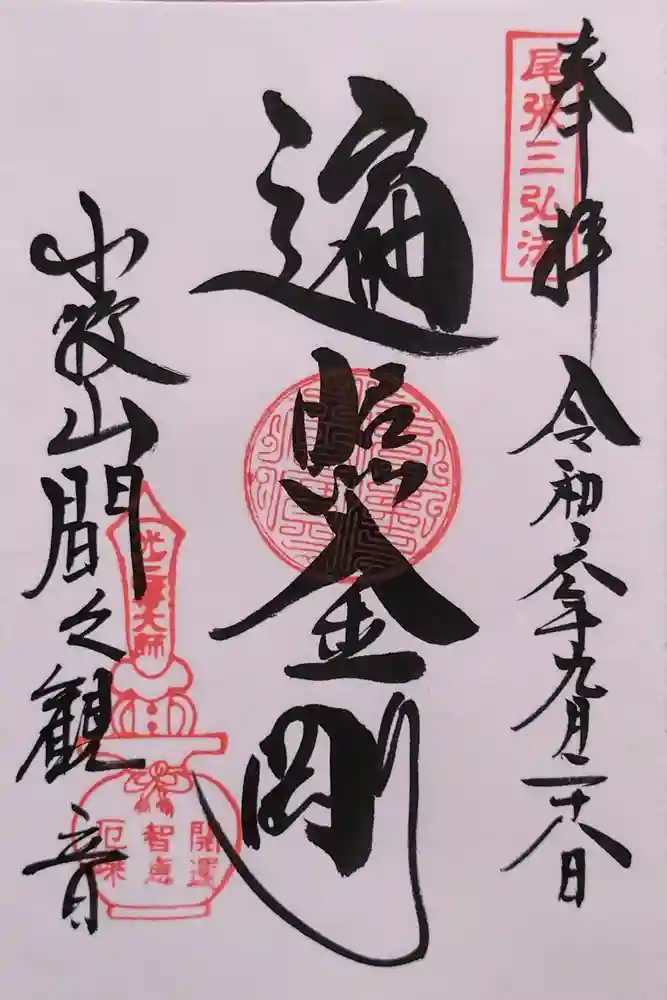 奉拝
尾張三弘法
令和六年九月二十八日
遍照金剛
小牧山間々観音
開運
智恵
厄除
大師